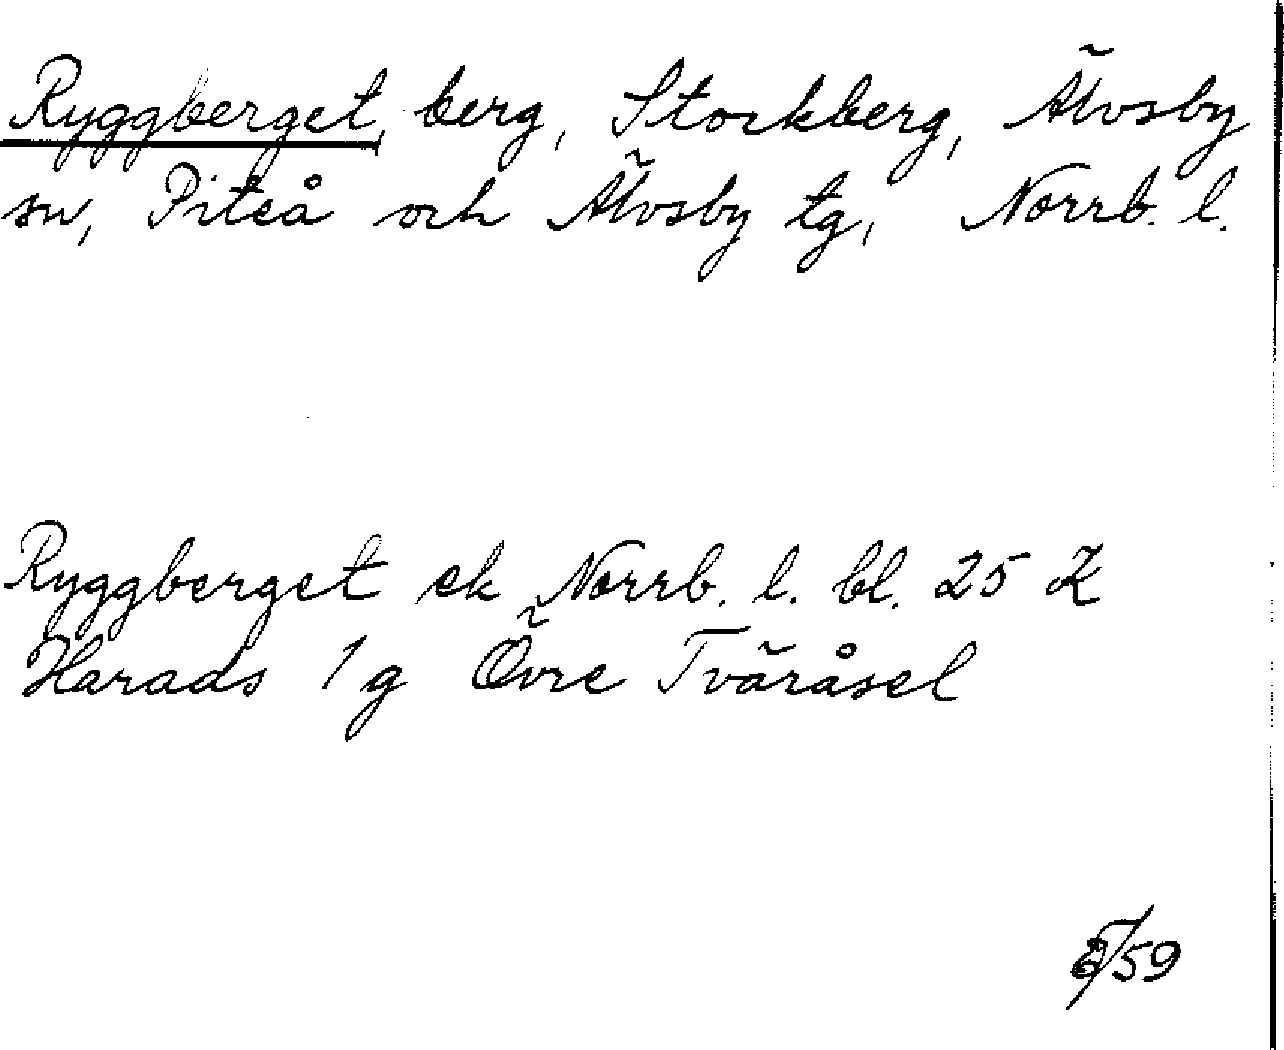 Ryggberget, berg, Storkberg, Älvsby
sn, Piteå och Älvsby tg, Norrb. l.
Ryggberget ek Norrb. l. bl. 25 K
Harads 1g Övre Tväråsel
/59